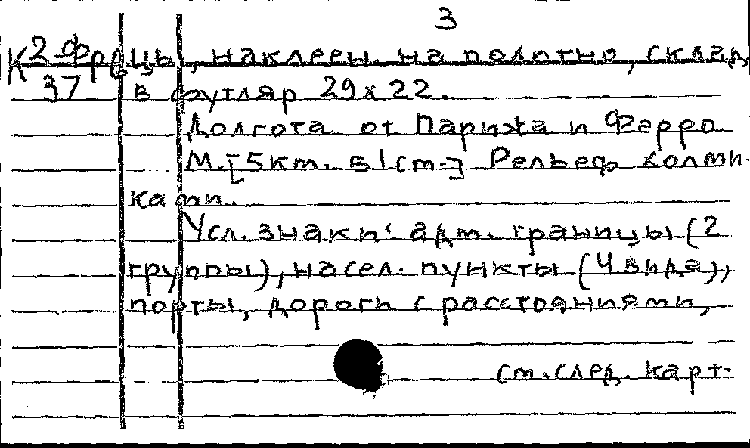 3
К 2-Ф
37
рцы, наклеен. на полотно, склад.
в футляр 29х22.
Долгота от Парижа и Ферро
М.[5км. в 1 см.] Рельеф холми-
ками.
Усл. знаки: адм. границы (2
группы), насел. пункты (4 вида),
порты, дороги с расстояниями,
см. след. карт.